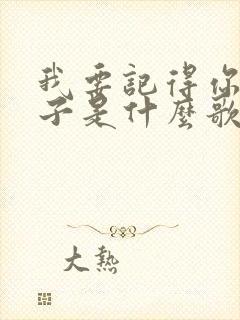 我要記得你
子是什麼歌
大熱